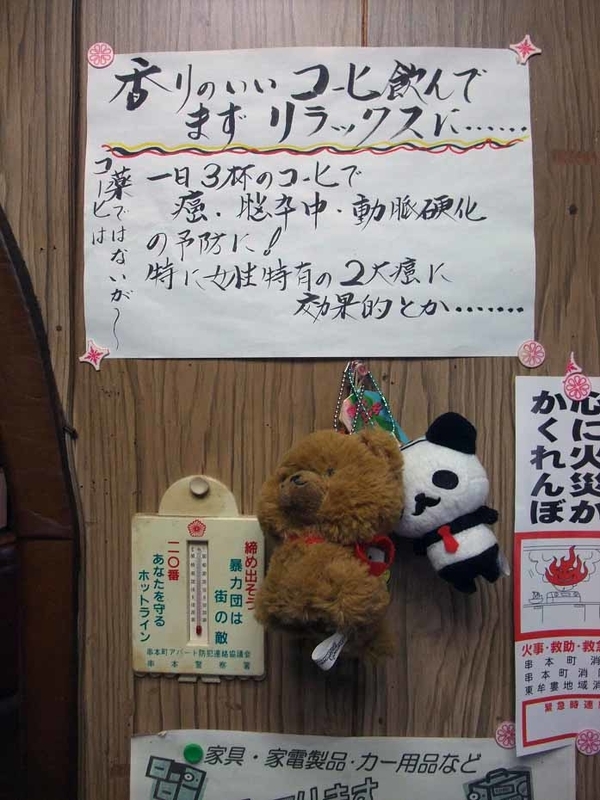 香りのいいコーヒ飲んで
まずリラックスに……
コーヒは
薬ではないが〜
一日3杯のコーヒで
癌・脳卒中・動脈硬化
の予防に!
特に女性特有の2大癌に
効果的とか……
締め出そう
暴力団は
街の敵
二〇番
あなたを守る
ホットライン
串本町アパート防犯連絡協議会
串本警察署
心に火災が
かくれんぼ
火事・救助・救急
串本町消
串本町消
東牟婁地域消
緊急時連
家具・家電製品・カー用品など